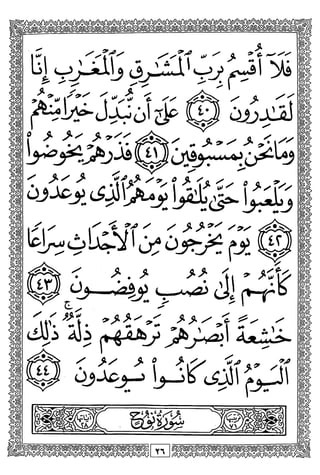 فَلَآ أُقْسِمُ بِرَبِّ ٱلْمَشَٰرِقِ وَٱلْمَغَٰرِبِ إِنَّا
لَقَٰدِرُونَ ٤٠ عَلَىٰٓ أَن نُّبَدِّلَ خَيْرًا مِّنْهُمْ
وَمَا نَحْنُ بِمَسْبُوقِينَ ٤١ فَذَرْهُمْ يَخُوضُوا۟
وَيَلْعَبُوا۟ حَتَّىٰ يُلَٰقُوا۟ يَوْمَهُمُ ٱلَّذِى يُوعَدُونَ
٤٢ يَوْمَ يَخْرُجُونَ مِنَ ٱلْأَجْدَاثِ سِرَاعًا
كَأَنَّهُمْ إِلَىٰ نُصُبٍ يُوفِضُونَ ٤٣
خَٰشِعَةً أَبْصَٰرُهُمْ تَرْهَقُهُمْ ذِلَّةٌ ۚ ذَٰلِكَ
ٱلْيَوْمُ ٱلَّذِى كَانُوا۟ يُوعَدُونَ ٤٤
سُورَةُ نُوحٍ
٢٦